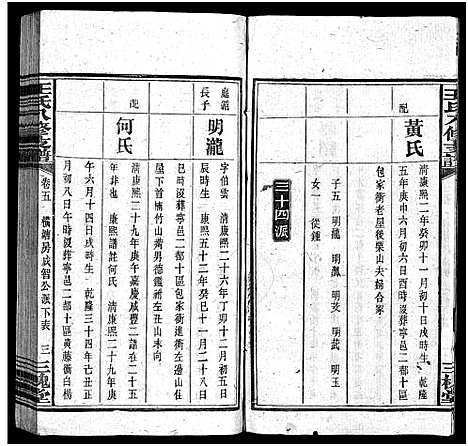 王氏八修支譜
配
黃氏
清康熙二年癸卯十一月初十日戌時生 乾隆
五年庚申六月初六日酉時歿葬寧邑二都十區
包家衝老屋後梨山夫婦共冢
子五 明龍 明鳳 明亥 明玉
女一 從鍾
三十四派
三槐堂
庭訓
長子
明瀧
字伯雲 清康熙二十六年丁卯十二月初五日
辰時生 康熙五十二年癸巳十一月二十八日
巳時歿葬寧邑二都十區包家衝對
屋下首楠竹山黃男德鑑祔左丑山未向
配
何氏
清康熙二十九年庚午嘉慶咸豐二譜在二十五
年非也 康熙譜註何氏 清康熙二十九年庚
午六月十四日戌時生 乾隆三十四年己丑正
月初八日午時歿葬寧邑二都十區黃藤衝白楊
王氏八修支譜
卷五 橫塘房成智公派下表 三
三槐堂